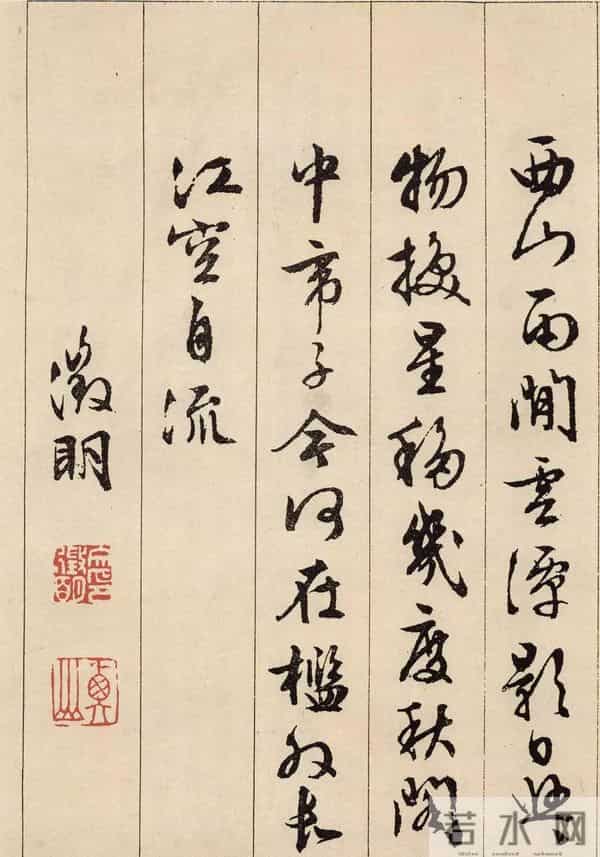 西山雨閒雲潭影日悠
物換星移幾度秋閣
中帝子今何在檻外長
江空自流
徵明
衡山
若水网